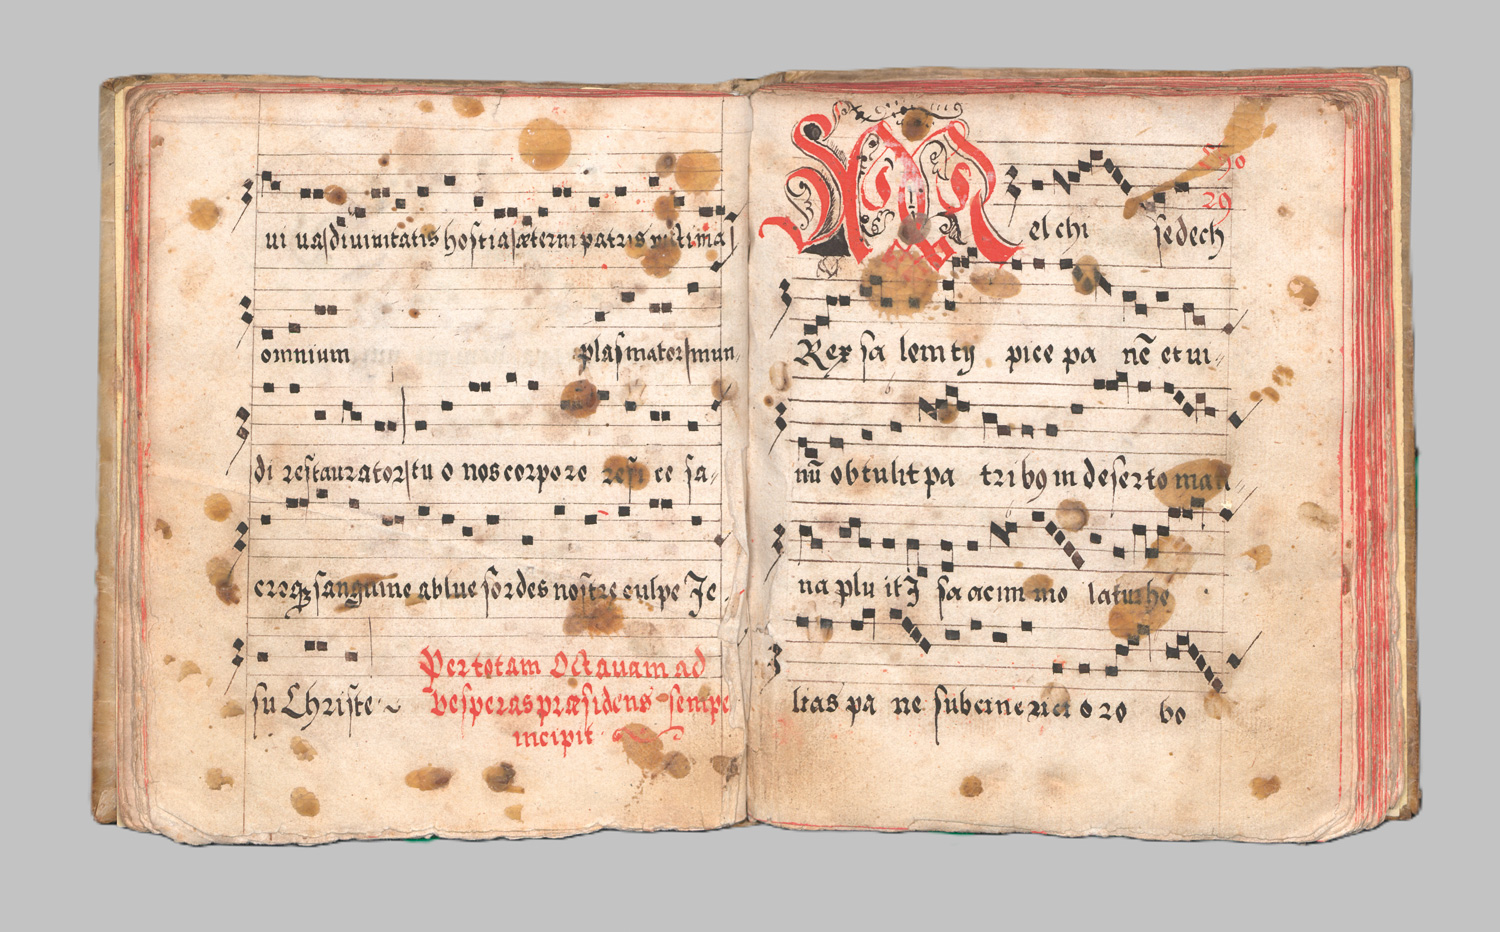 ui uas diuinitatis hostia æterni patris uictima
omnium plasmator mun-
di restaurator tu o nos corpore refi ce sa-
creqꝫ sanguine ablue sordes nostre culpe Je-
su Christe
Per totam Octauam ad
vesperas præsidens semper
incipit
29
Melchi sedech
Rex sa lem ty pice pa nē et ui-
nū obtulit pa tribꝯ in deserto man-
na plu it J sa ac im mo latur he
lias pa ne subcine ricio ro bo